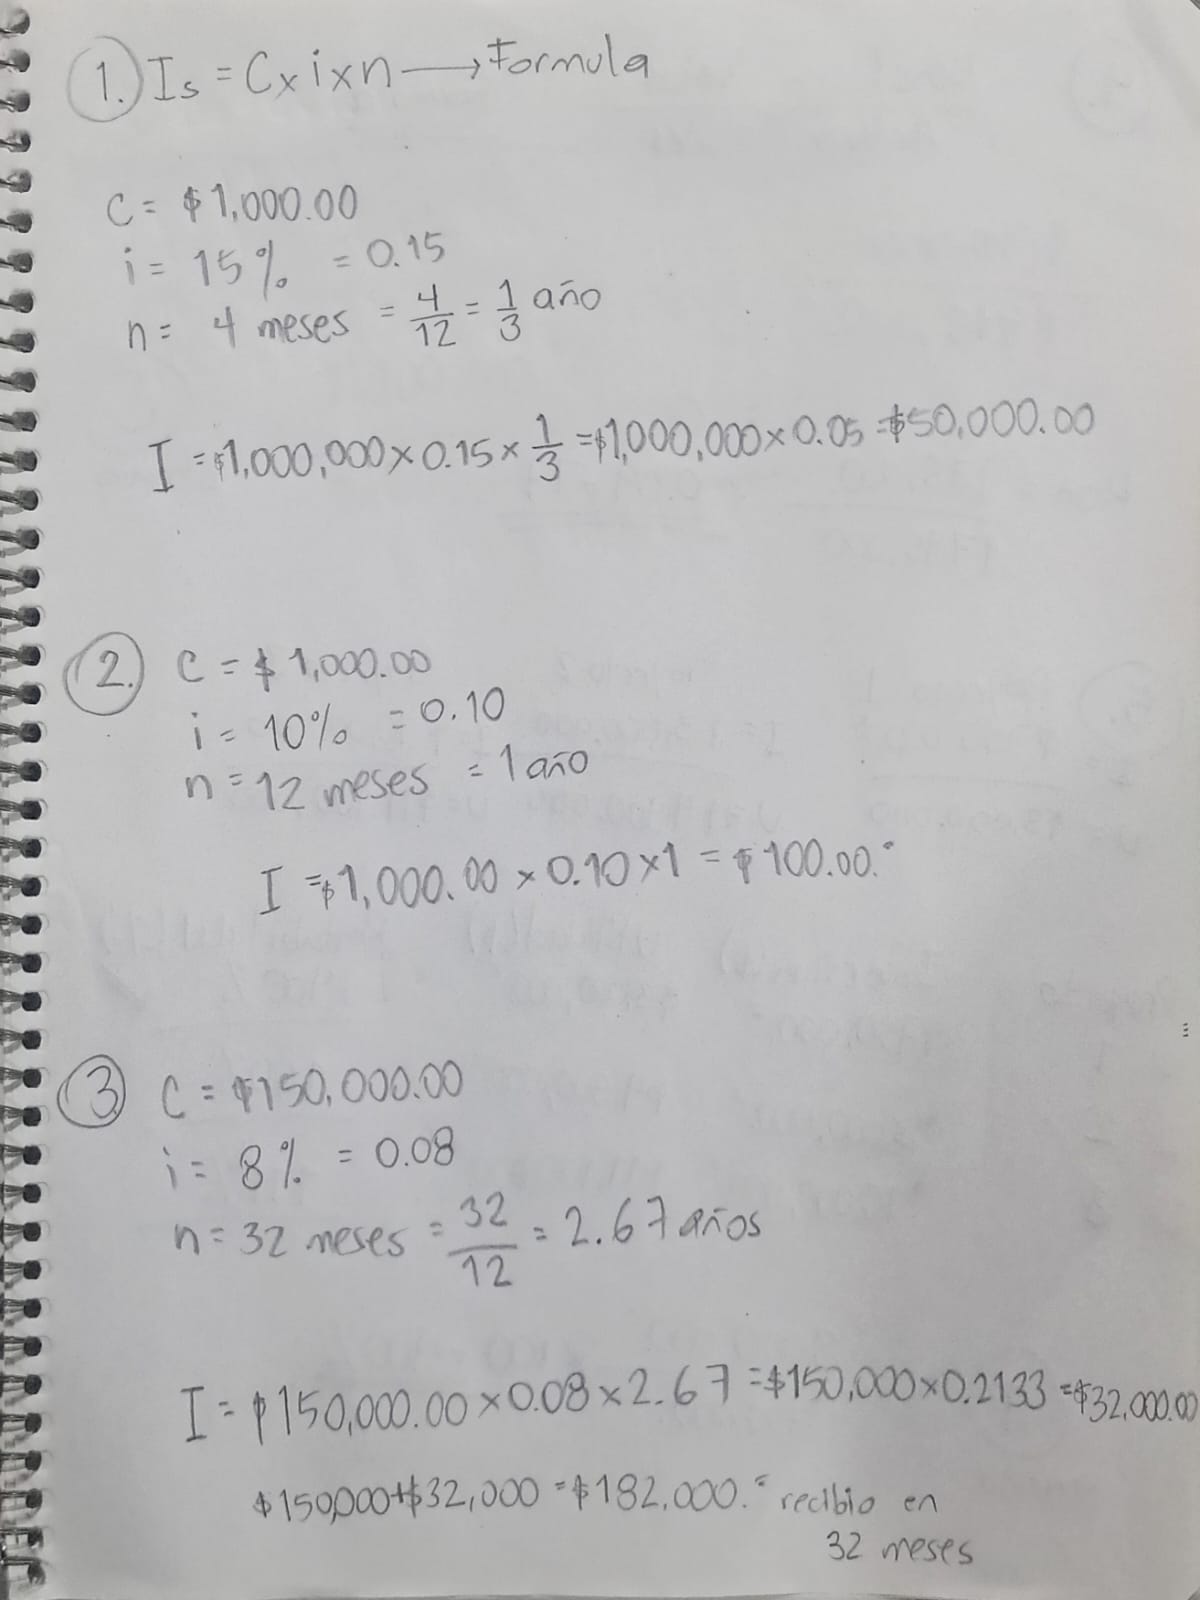 1. Is = C x i x n → Formula
C = $ 1,000.00
i = 15% = 0.15
n = 4 meses = 4/12 = 1/3 año
I = $1,000,000 x 0.15 x 1/3 = $1,000,000 x 0.05 = $50,000.00
2. C = $ 1,000.00
i = 10% = 0.10
n = 12 meses = 1 año
I = $1,000.00 x 0.10 x 1 = $ 100.00.
3 C = $150,000.00
i = 8% = 0.08
n = 32 meses = 32/12 = 2.67 años
I = $150,000.00 x 0.08 x 2.67 = $150,000 x 0.2133 = $32,000.00
$150,000 + $32,000 = $182,000.= recibio en
32 meses